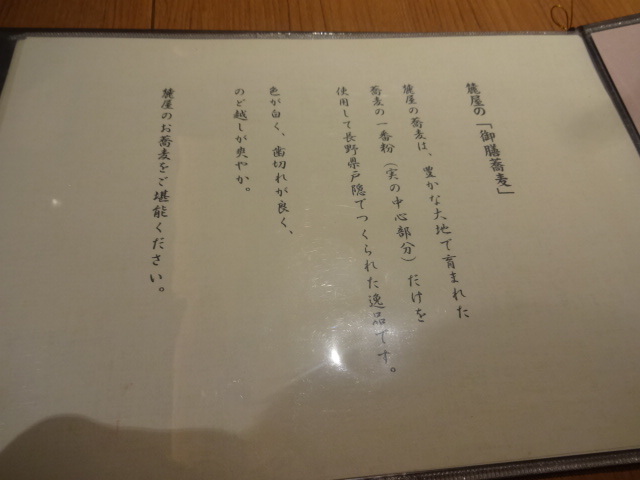 麓屋の「御膳蕎麦」
麓屋の蕎麦は、豊かな大地で育まれた
蕎麦の一番粉（実の中心部分）だけを
使用して長野県戸隠でつくられた逸品です。
色が白く、歯切れが良く、
のど越しが爽やか。
麓屋のお蕎麦をご堪能ください。